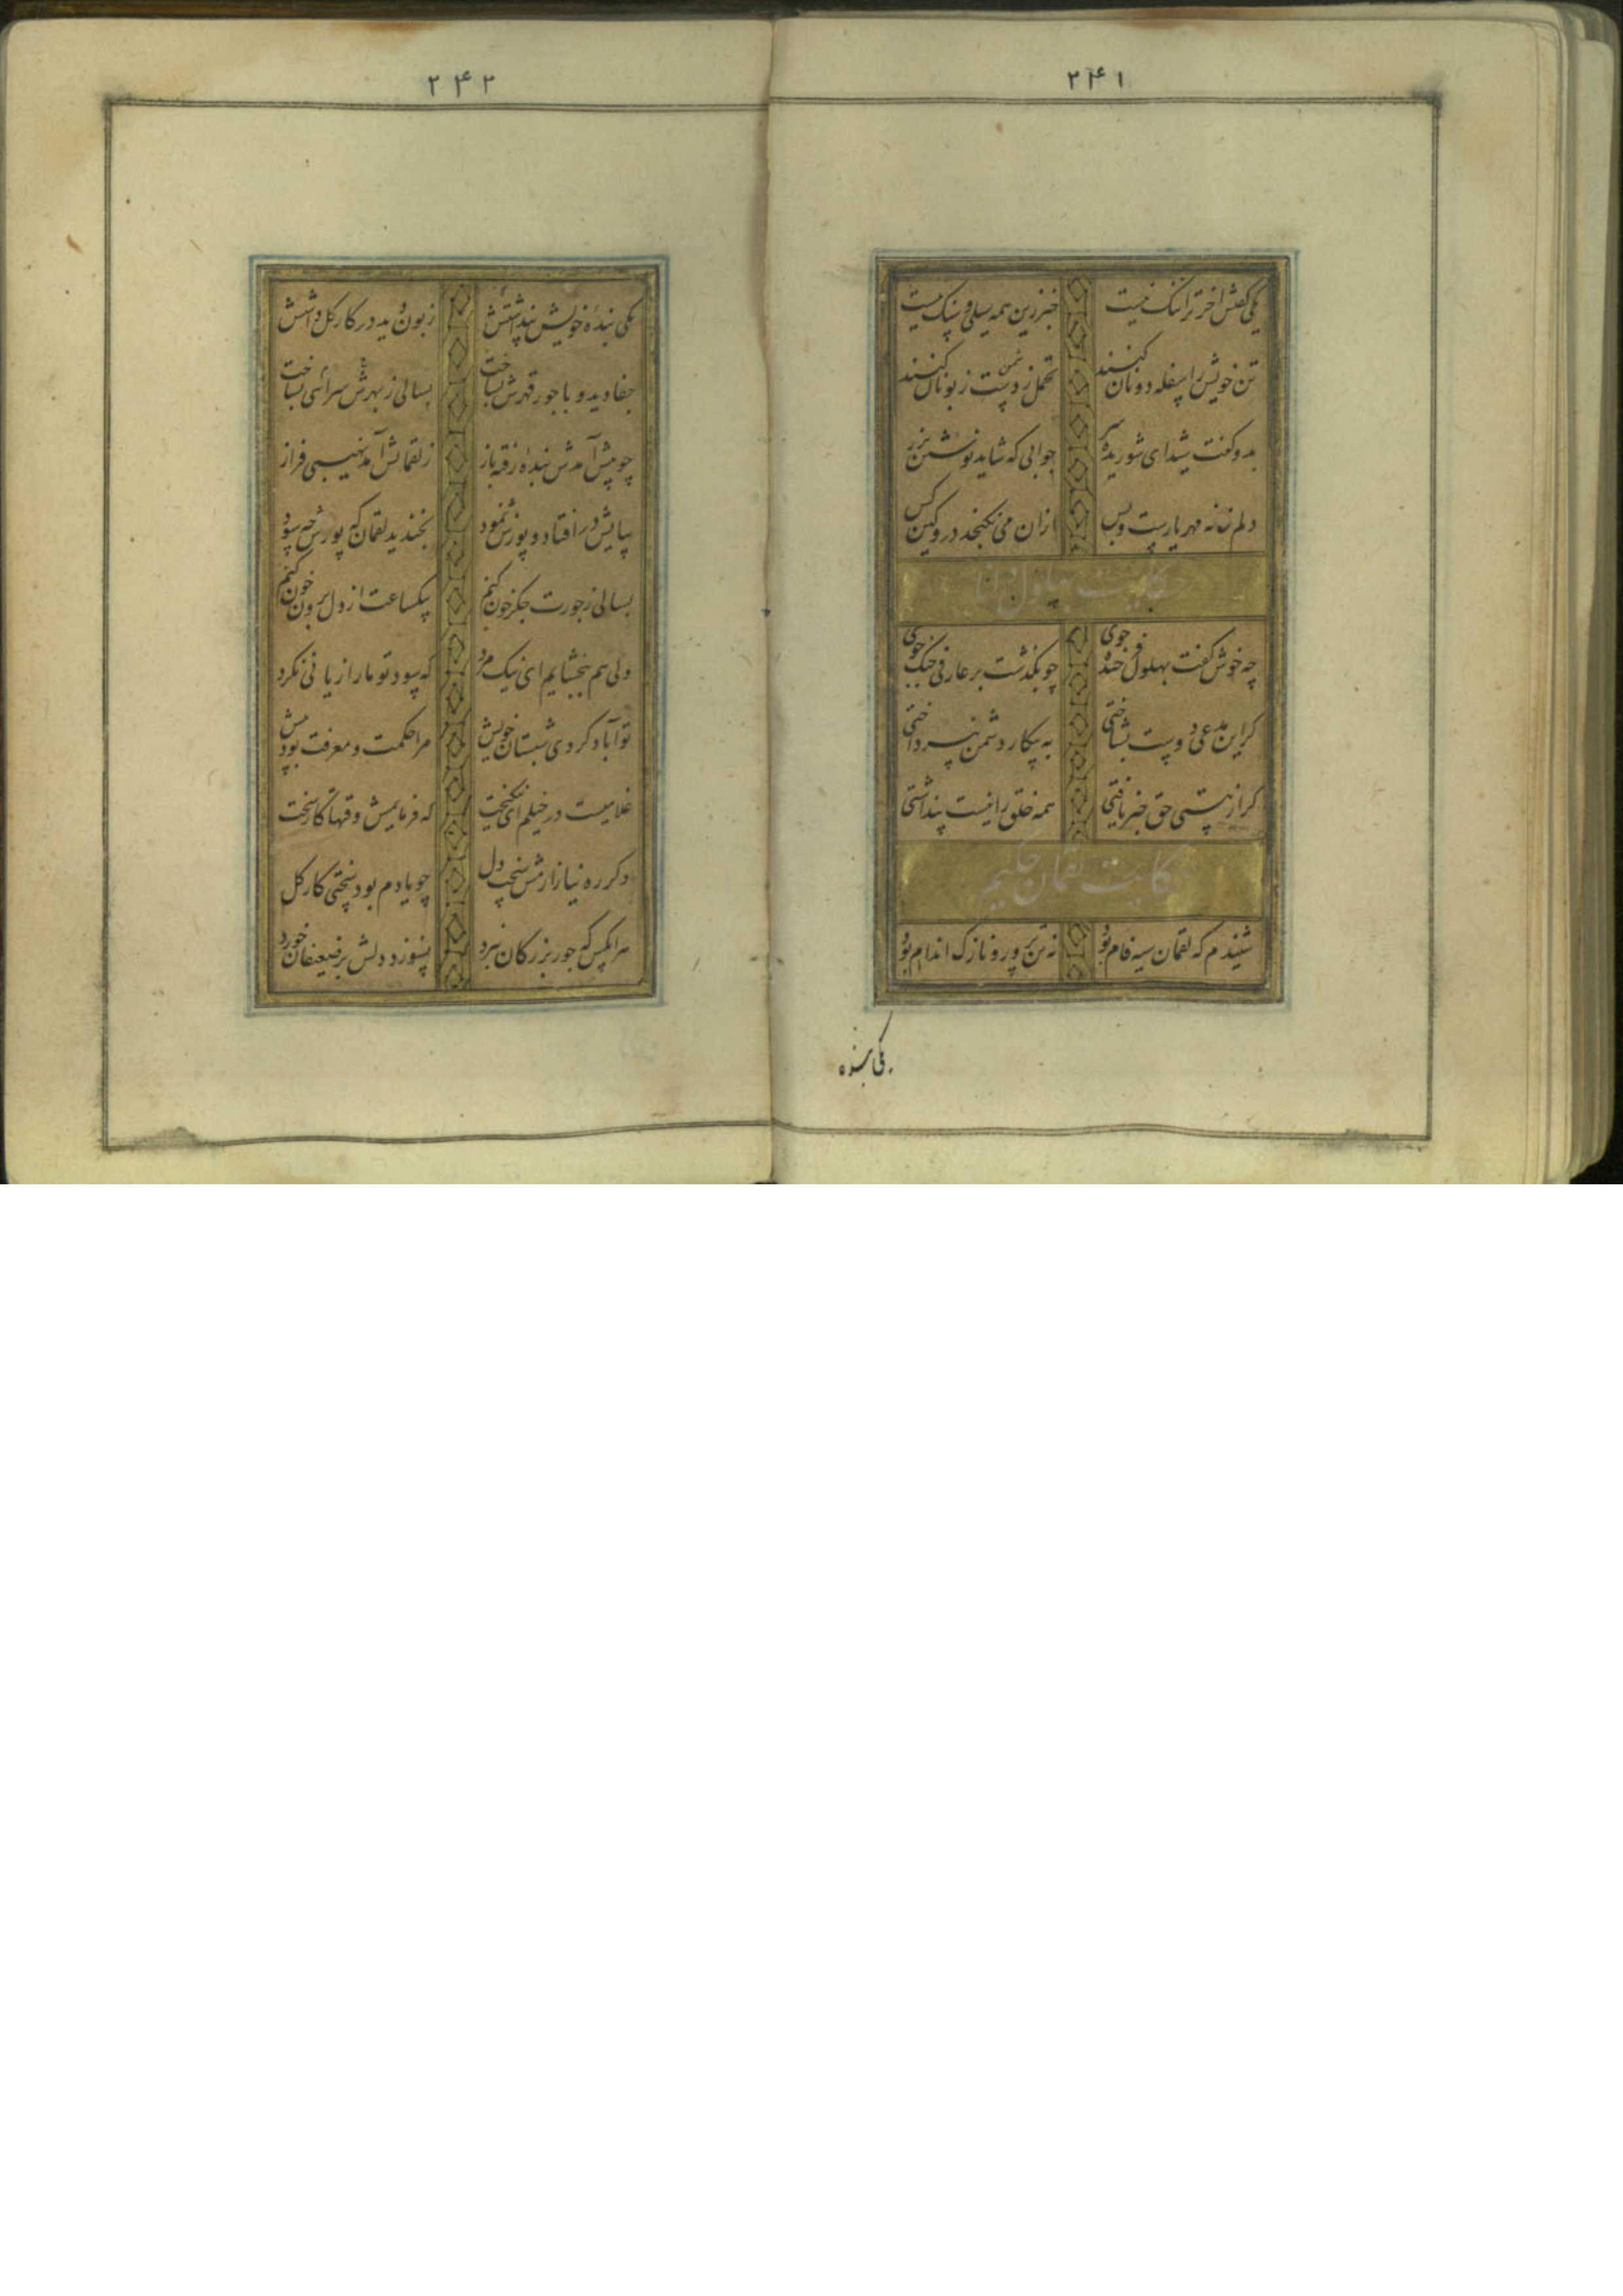 ۲۴۱
یکی گفتش آخر ترا ننگ نیست خبر زین همه سیلی و سنگ نیست
تن خویشرا سفله دونان کنند تحمل ز دشمن زبونان کنند
بدو گفت شیدای شوریده سر جوابی که شاید نوشتن بزر
دلم خانه مهر یارست و بس ازان می نکنجد درو کین کس
حکایت بهلول دانا
چه خوش گفت بهلول فرخنده خوی چو بگذشت بر عارفی جنگ جوی
گر این مدعی دوست بشناختی به پیکار دشمن نپرداختی
گر از هستی حق خبر یافتی همه خلق را نیست پنداشتی
حکایت لقمان حکیم
شنیدم که لقمان سیه فام بود نه تن پرور و نازک اندام بود
یکی بنده
۲۴۲
یکی بندهٔ خویش پنداشتش زبون دید در کار گل داشتش
جفا دید و با جور قهرش بساخت بسالی ز بهرش سرائی بساخت
چو پیش آمدش بندهٔ رفته باز ز لقمانش آمد نهیبی فراز
بپایش در افتاد و پوزش نمود بخندید لقمان که پوزش چه سود
بسالی ز جورت جگر خون کنم بیکساعت از دل برون چون کنم
ولی هم ببخشایم ای نیک مرد که سود تو ما را زیانی نکرد
تو آباد کردی شبستان خویش مرا حکمت و معرفت بود بیش
غلامیست در خیلم ای نیکبخت که فرمایمش وقتها کار سخت
دگر ره نیازارمش سخت دل چو یادم بود سختی کار گل
هر انکس که جور بزرگان نبرد نسوزد دلش بر ضعیفان خورد